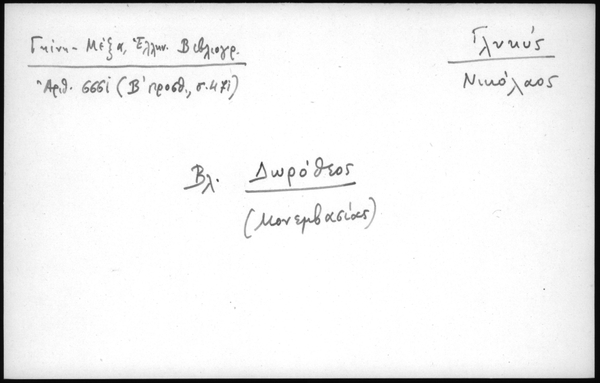 Γκίνη - Μέξα, Ἑλλην. Βιβλιογρ.
Ἀριθ. 6661 (Β' προσθ., σ. 471)
Γλυκύς
Νικόλαος
Βλ. Δωρόθεος
(Μονεμβασίας)